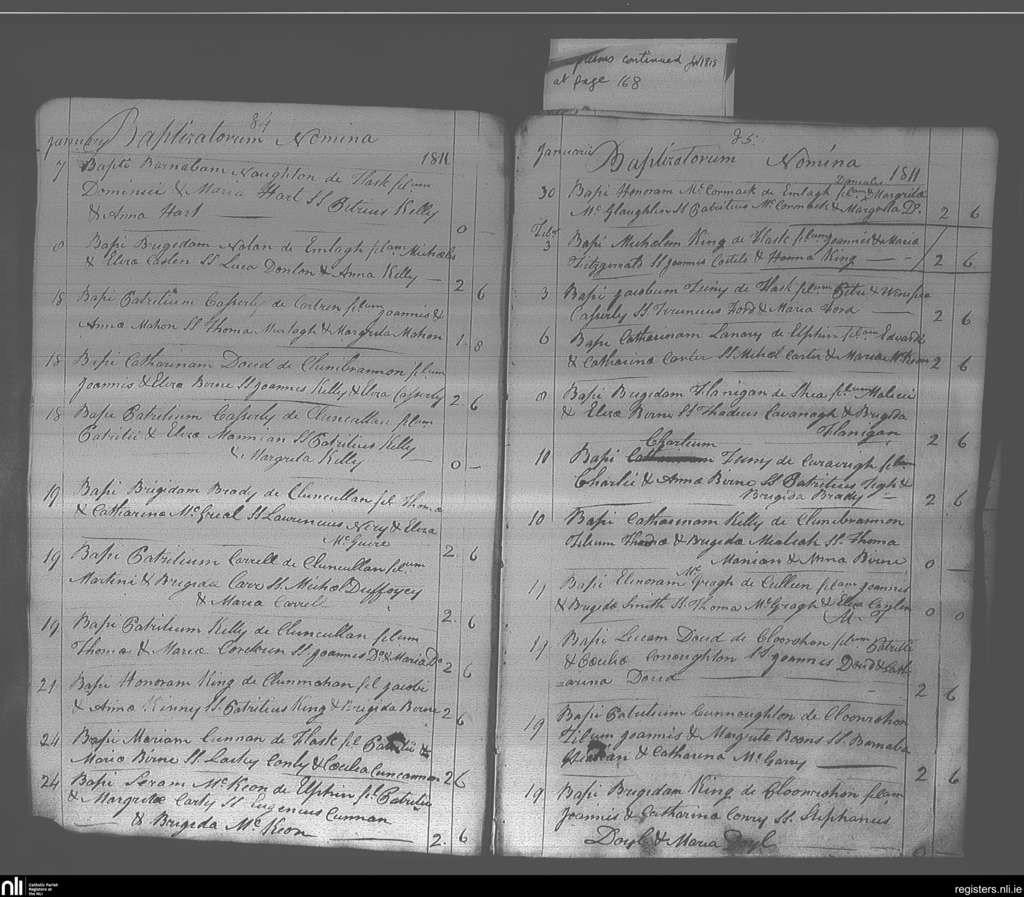 continued
at page 168
84
January Baptizatorum Nomina
1811
7 Bapti Barnabam Naughton de Flask filum
Dominici & Maria Hart SS Petrius Kelly
& Anna Hart 0 —
Bapi Brugidam Nolan de Emlagh filam Michaelis
& Eliza SS Luca Donlon & Anna Kelly — 2 6
18 Bapi Patritium Caferly de filum Joannis &
Anna Mahon SS Thoma Murtagh & Margrita Mahon 1 8
18 Bapi Catharinam Dowd de Clunibrannon filum
Joannis & Eliza Birne SS Joannis Kelly & Eliza Caferly 2 6
18 Bapi Patritium Caferly de Cluncullan filum
Patritii & Eliza Mannian SS Patritius Kelly
& Margrita Kelly 0 —
19 Bapi Brigidam Brady de Cluncullan fil Thoma
& Catharina McGreal SS Laurencius & Eliza
McGuire 2 6
19 Bapi Patritium Carrell de Cluncullan filum
Martini & Brugida Carr SS Michol Duffy
& Maria Carrell 2 6
19 Bapi Patritium Kelly de Cluncullan filum
Thoma & Maria Corcoran SS Joannis Do & Maria Do 2 6
21 Bapi Honoram King de Clunmahan fil Jacobi
& Anna Kinny SS Patritius King & Brugida Birne 2 6
24 Bapi Mariam Cunnan de Flask fil Patritii &
Maria Birne SS Larky Conly & Cecilia Cuncannon 2 6
24 Bapi Saram McKeon de Elphin fil Patritii
& Margrita Carty SS Eugenius Cunnan
& Brugida McKeon 2 6
85
Januarii Baptizatorum Nomina
1811
30 Bapi Honoram McCormack de Emlagh filam & Margrita
McGlaughlin SS Patritius McCormack & Margrita Do 2 6
3 Bapi Michalem King de Flask filum Joannis & Maria
Fitzgerrals SS Joannis Costelo & Honna King — 2 6
3 Bapi Jacobum Feeny de Flask filum Petri & Winifrea
Caferly SS Ford & Maria Ford — 2 6
6 Bapi Catharinam Lanary de Elphin filam Edwardi
& Catharina Carter SS Michol Carter & Mariae McKeon 2 6
8 Bapi Brugidam Flanigan de Shea filum
& Eliza Birne SS Thadeus Cavanagh & Brugida
Flanigan 2 6
Charlium
10 Bapi Feeny de filum
Charlii & Anna Birne SS Patritius Tigh &
Brugida Brady — 2 6
10 Bapi Catharinam Kelly de Clunibrannon
Filium Thadea & Brugida SS Thoma
Manian & Anna Birne 0 —
11 Bapi Elinoram McGragh de Cullen filam Joannis
& Brugida Smith SS Thoma McGragh & Eliza
0 0
19 Bapi Lucam Dowd de Cloonrohan filum Patritii
& Cecilia Conoughton SS Joannis Dowd & Cath
=arina Dowd 2 6
19 Bapi Patritium Cunnoughton de Cloonrohan
Filium Joannis & Margrita Beans SS Barnaba
& Catharina McGarry — 2 6
19 Bapi Brugidam King de Cloonrohan filum
Joannis & Catharina Corry SS Stephanus
Doyl & Maria Doyl 0
nli
Catholic Parish
Registers at
the NLI
registers.nli.ie